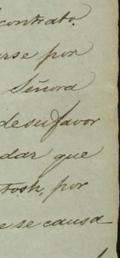 contrato.
rse por
Señora
de su favor
dar que
tosh, por
e se causa